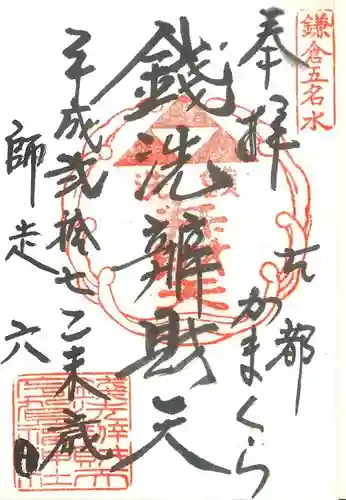 鎌倉五名水
奉拝
古都
かまくら
銭洗辨財天
平成弐拾七乙未歳
師走六日